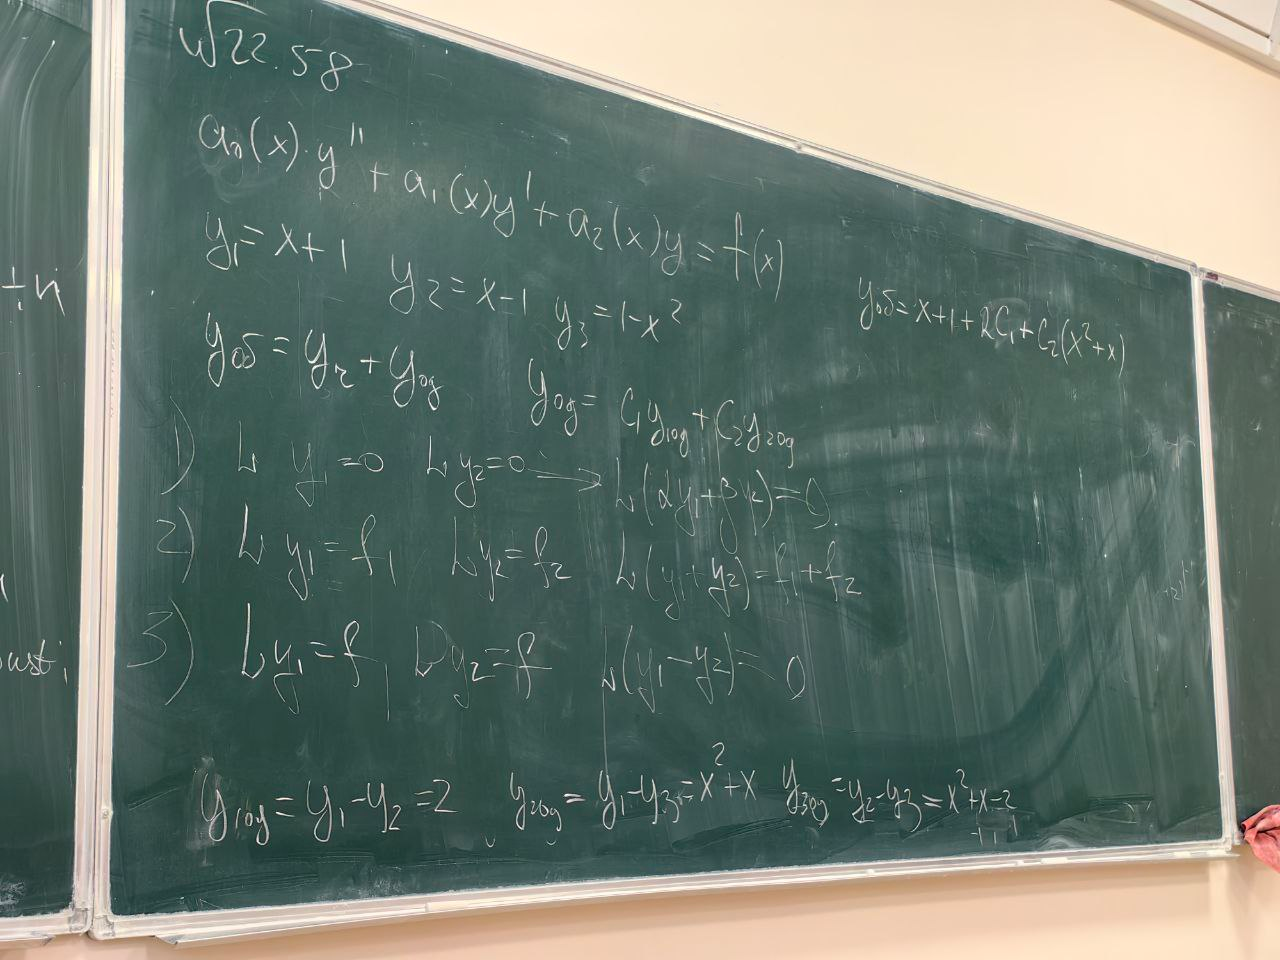 √22.58
a₀(x)·y'' + a₁(x)y' + a₂(x)y = f(x)
y₁ = x+1 y₂ = x-1 y₃ = 1-x²
yоб = x+1+2C₁+C₂(x²+x)
yоб = yч + yод yод = C₁y₁од + C₂y₂од
1) L y₁ = 0 L y₂ = 0 → L(αy₁+βy₂) = 0
2) L y₁ = f₁ L y₂ = f₂ L(y₁+y₂) = f₁+f₂
3) L y₁ = f, L y₂ = f L(y₁-y₂) = 0
y₁од = y₁-y₂ = 2 y₂од = y₁-y₃ = x²+x y₃од = y₂-y₃ = x²+x-2
+n